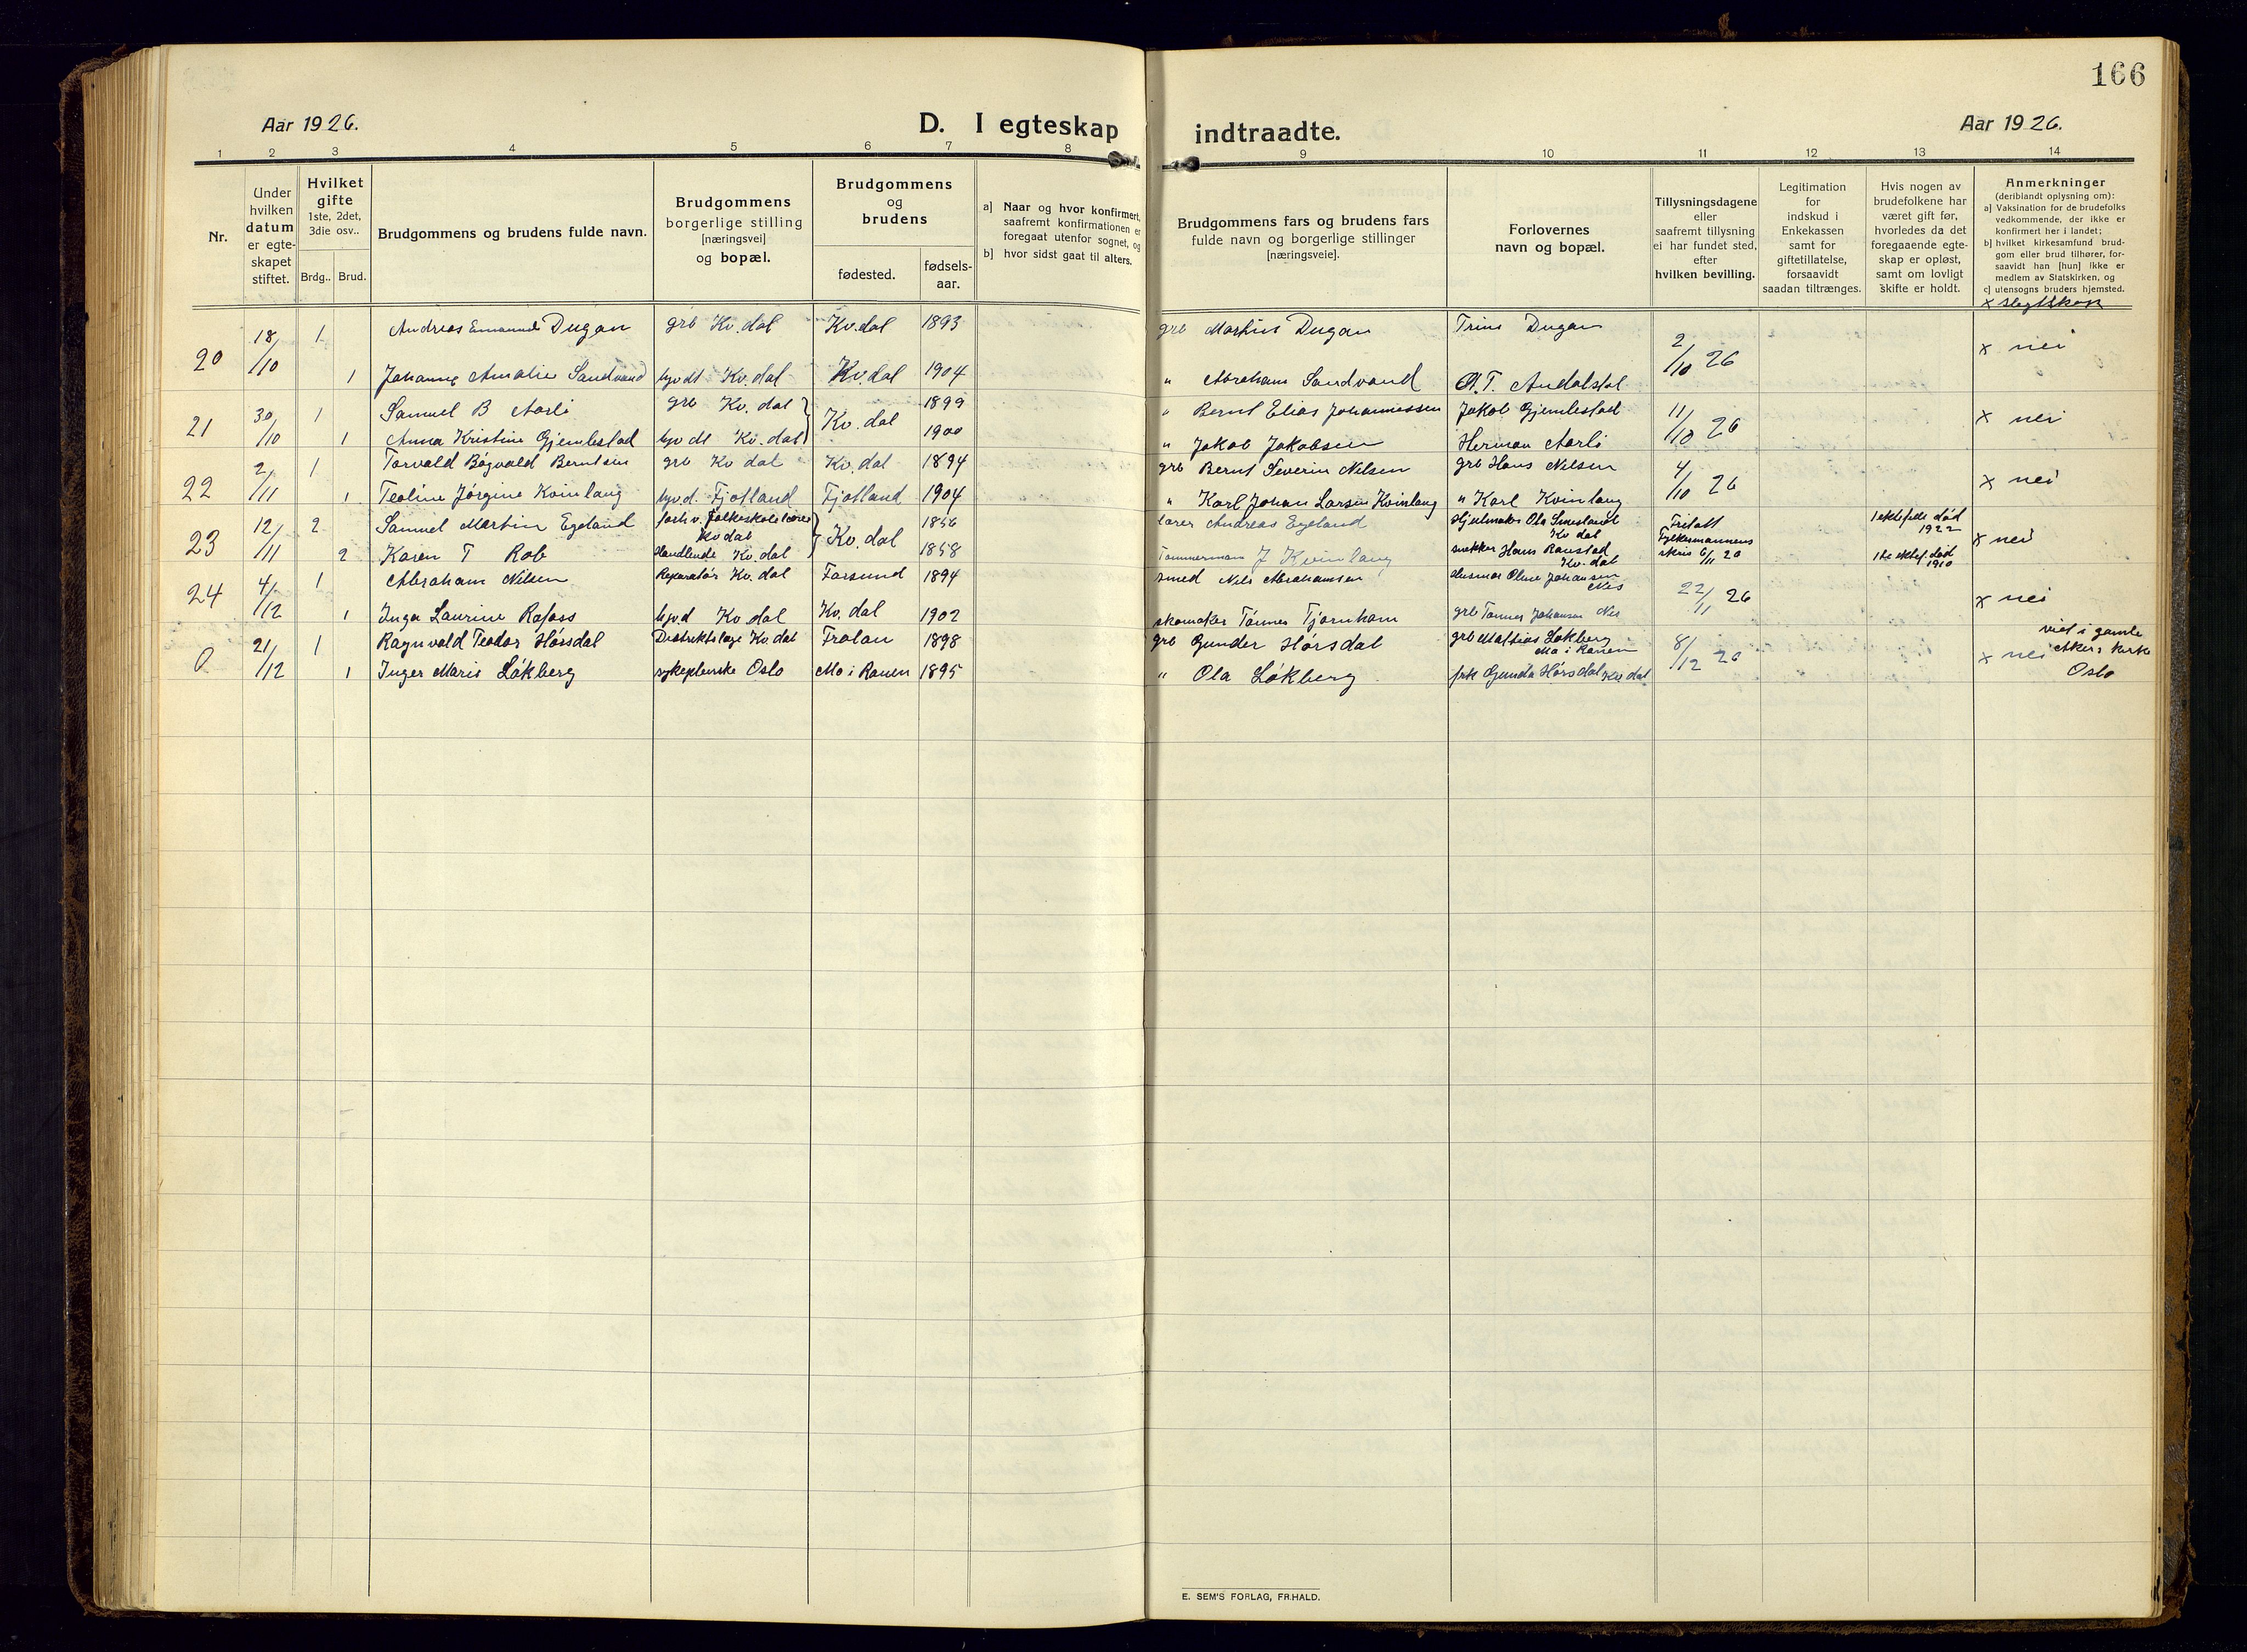 166
Aar 1926.
D. I egteskap indtraadte.
Aar 1926.
1 2 3 4 5 6 7 8 9 10 11 12 13 14
Nr.
Under hvilken datum er egte-skapet stiftet.
Hvilket gifte
1ste, 2det, 3die osv..
Brdg.. Brud.
Brudgommens og brudens fulde navn.
Brudgommens borgerlige stilling [næringsvei] og bopæl.
Brudgommens og brudens
fødested.
fødsels-aar.
a] Naar og hvor konfirmert, saafremt konfirmationen er foregaat utenfor sognet, og
b] hvor sidst gaat til alters.
Brudgommens fars og brudens fars fulde navn og borgerlige stillinger [næringsveie].
Forlovernes navn og bopæl.
Tillysningsdagene eller saafremt tillysning ei har fundet sted, efter hvilken bevilling.
Legitimation for indskud i Enkekassen samt for giftetillatelse, forsaavidt saadan tiltrænges.
Hvis nogen av brudefolkene har været gift før, hvorledes da det foregaaende egte-skap er opløst, samt om lovligt skifte er holdt.
Anmerkninger
(deriblandt oplysning om):
a] Vaksination for de brudefolks vedkommende, der ikke er konfirmert her i landet;
b] hvilket kirkesamfund brud-gom eller brud tilhører, for-saavidt han [hun] ikke er medlem av Statskirken, og
c] utensogns bruders hjemsted.
x slegtskap
20 18/10 1 Andreas Emanuel Dugan grb Kv.dal Kv.dal 1893 grb Martin Dugan Trine Dugan 2/10 26 x nei
1 Johanne Amalie Sandvand hjv dt Kv.dal Kv.dal 1904 " Abraham Sandvand O.T. Andalstal
21 30/10 1 Samuel B Aarli grb Kv.dal Kv.dal 1899 " Bernt Elias Johannessen Jakob Gjemlestad 11/10 26 x nei
1 Anna Kristine Gjemlestad hjv dt Kv.dal 1900 " Jakob Jakobsen Herman Aarli
22 2/11 1 Torvald Bågvald Berntsen grb Kv dal Kv.dal 1894 grb Bernt Severin Nilsen grb Hans Nilsen 4/10 26 x nei
1 Teoline Jørgine Kvinlaug hjv.d. Fjotland Fjotland 1904 " Karl Johan Larsen Kvinlaug " Karl Kvinlaug
23 12/11 2 Samuel Martin Egeland forhv. folkeskolelærer Kv dal Kv.dal 1856 lærer Andreas Egeland Hjulmaker Ola Smeslandt Kv dal Fritatt Fylkesmannens skriv 6/11 26 1 ektefelle død 1922 x nei
2 Karen T Rob Handlende Kv.dal 1858 Tømmermann J Kvinlaug snekker Hans Raustad Kv.dal 1te ektef. død 1910
24 4/12 1 Abraham Nilsen Reparatør Kv.dal Farsund 1894 smed Nils Abrahamsen Oline Johansen Nes 22/11 26 x nei
1 Inga Laurine Rafoss hjv.d Kv.dal Kv.dal 1902 skomaker Tønnes Tjørnhom grb Tønnes Johansen Nes
0 21/12 1 Ragnvald Teodor Hørsdal Distriktslæge Kv dal Frolan 1898 grb Gunder Hørsdal grb Mathias Løkberg Mo i Ranen 8/12 26 x nei viet i gamle Akers kirke Oslo
1 Inger Marie Løkberg sykepleierske Oslo Mo i Ranen 1895 " Ola Løkberg frk Gunda Hørsdal Kv dal
E. SEM'S FORLAG, FR.HALD.